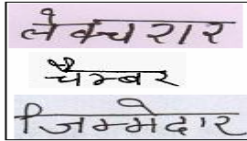 लेक्चरार
चैम्बर
जिम्मेदार